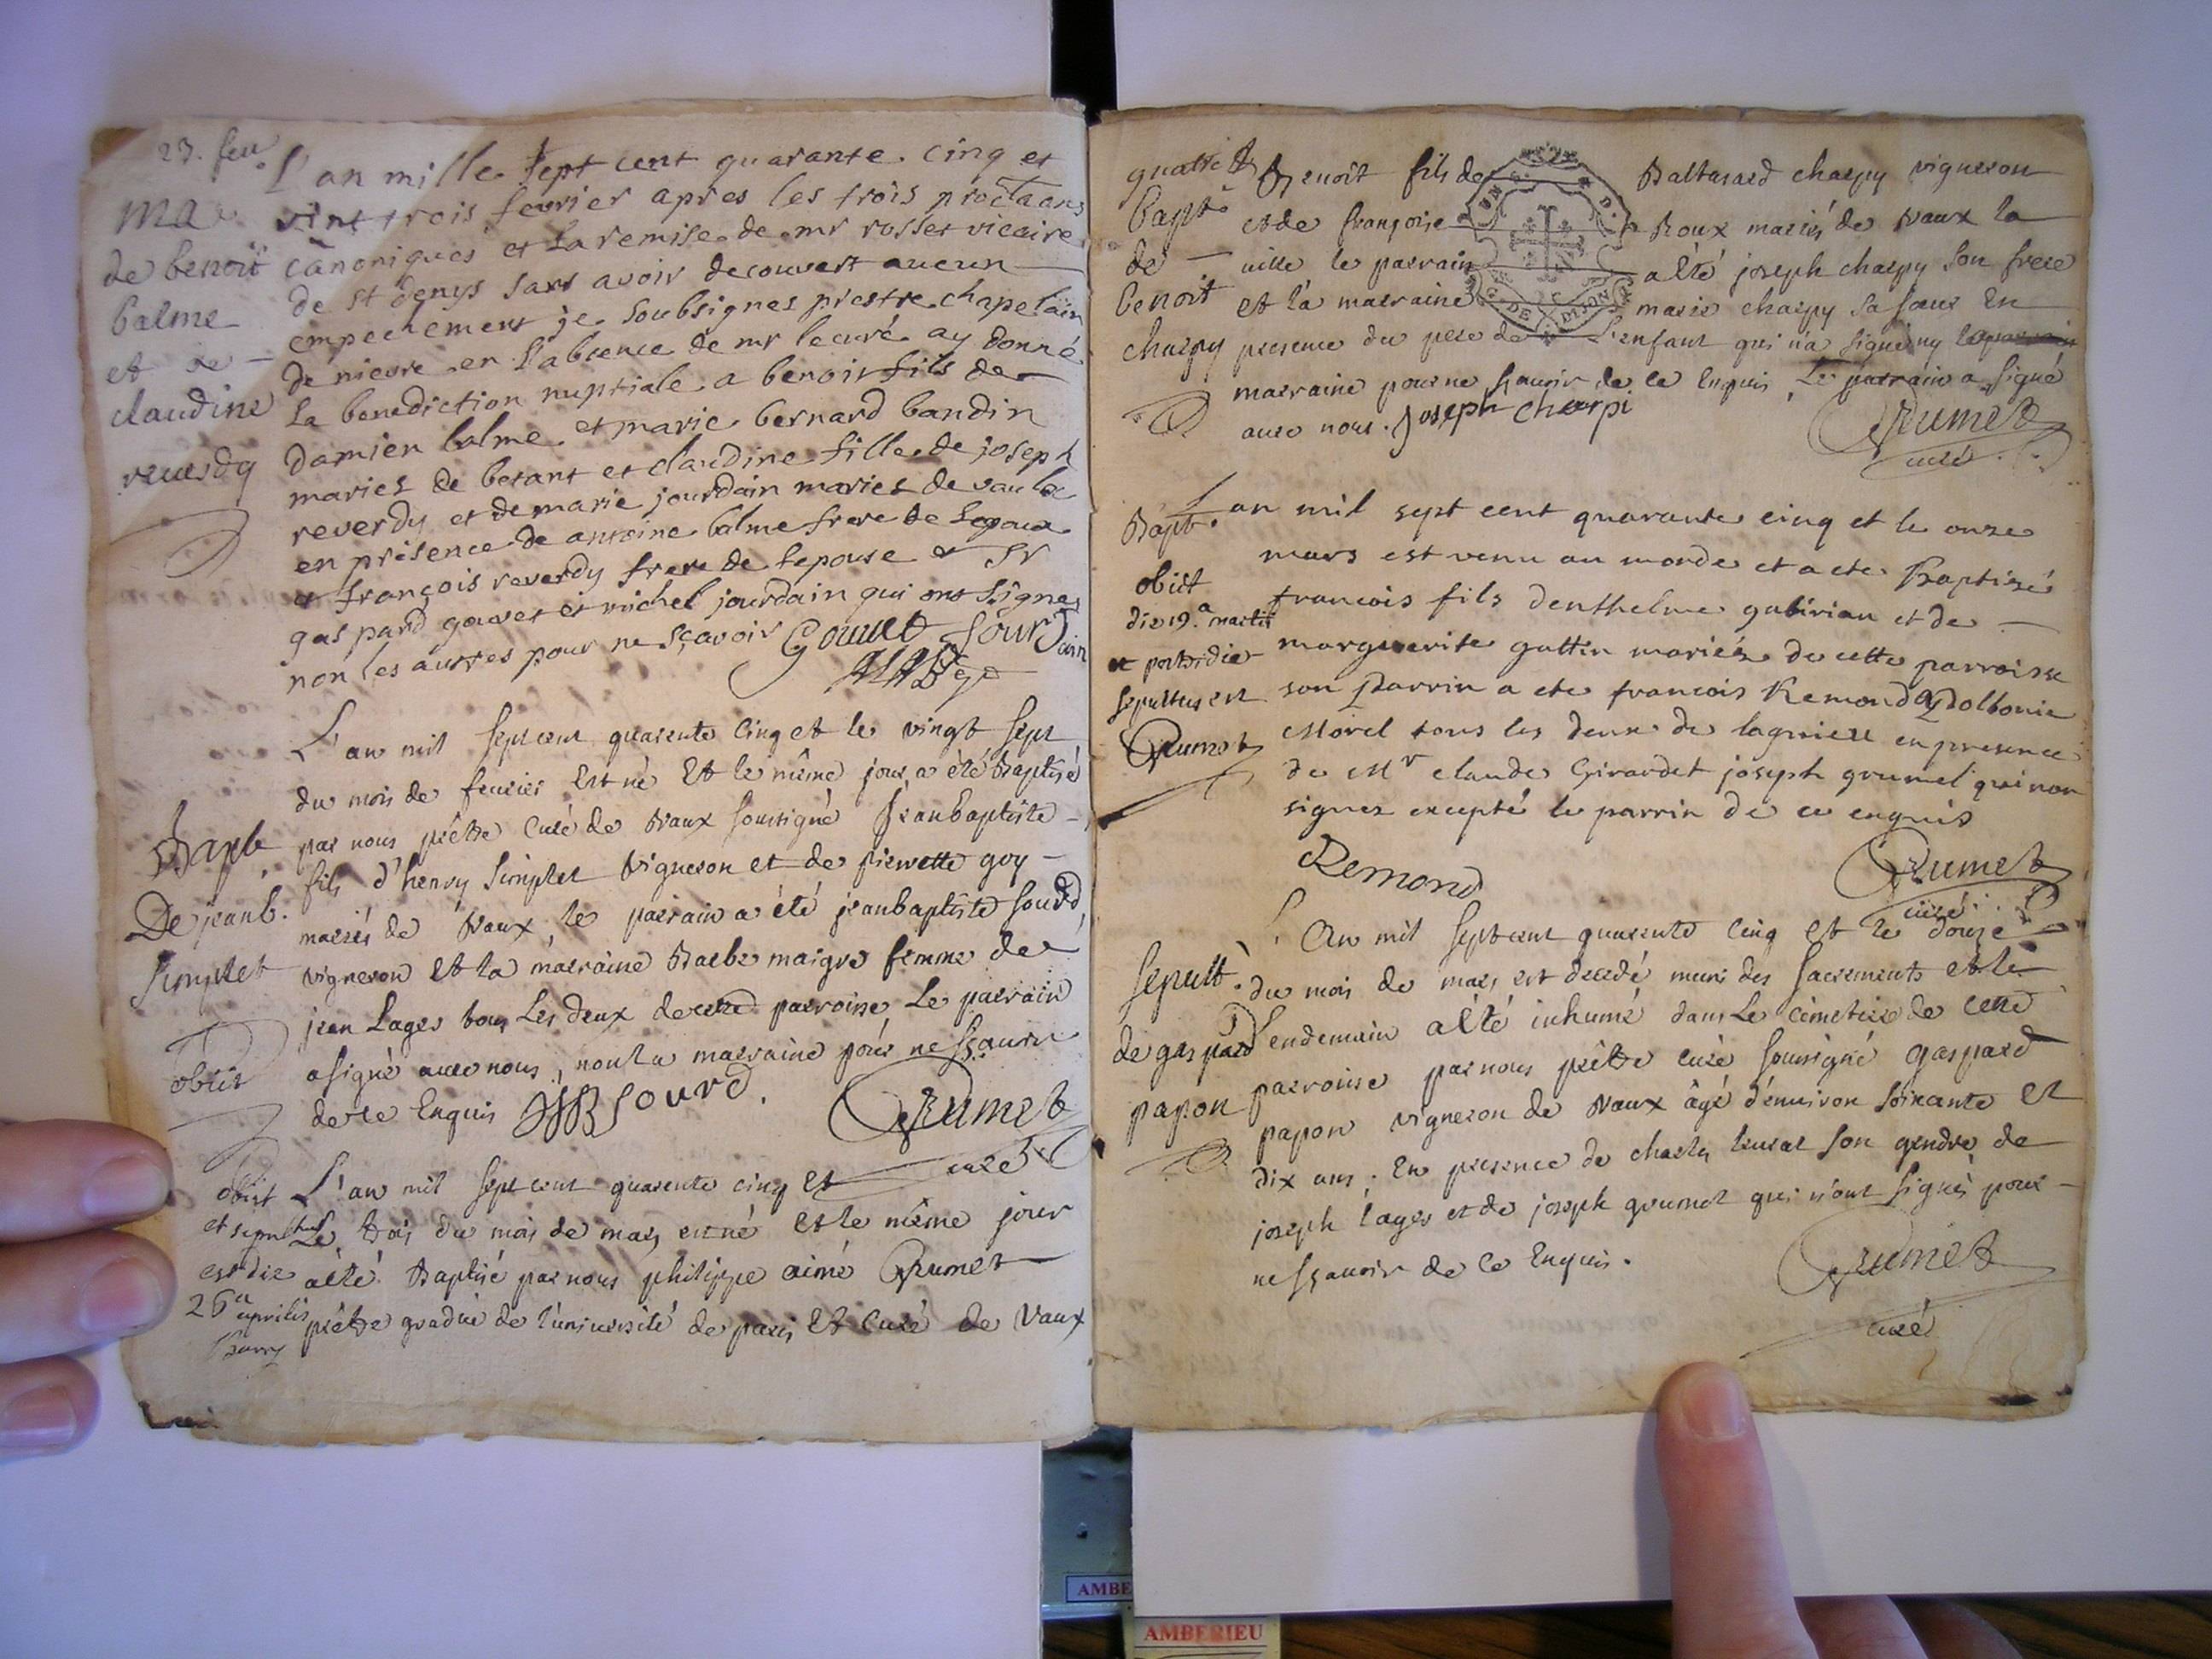 23. feu
Ma
de benoit
balme
et de
claudine
reuerdy
L'an mille sept cent quarante. cinq et
vint trois fevrier apres les trois
canoniques et la remise de mr rosset vicaire
de st denys sans avoir decouvert aucun
empechement je soubsignes prestre chapelain
de nieure en l'absence de mr le curé ay donné
la benediction nuptiale a benoit fils de
damien balme et marie bernard bandin
maries de betant et claudine fille de joseph
reverdy et de marie jourdain maries de vaux
en présence de antoine balme frere de
et françois reverdy frere de lepouse & sr
gaspard gouvet et michel jourdain qui ont signes
non les autres pour ne sçavoir Gouvet Jourdain
Bapt.
De jeanb.
Simplet
obiit
L'an mil sept cent quarente Cinq et le vingt sept
du mois de feurier est né Et le même jour a été Baptisé
par nous prêtre Curé de Vaux soussigné Jeanbaptiste
fils d'henry Simplet Vigneron et de pierrette goy
mariés de Vaux, le parrain a été jeanbaptiste sourd
vigneron Et la marraine Barbe maigre femme de
jean Lages tous Les deux de cette parroisse Le parrain
a signé auec nous, non la marraine pour ne sçauoir
de ce Enquis JB sourd. Grumet
curé
obiit
et sepultus
est die
26a aprilis
L'an mil sept cent quarente cinq et
Le trois du mois de mars est né et le même jour
a été Baptisé par nous philippe aimé Grumet
prêtre gradué de l'uniuersité de paris Et Curé de Vaux
quatre
bapt
de
benoit
charpy
Benoit fils de Baltazard charpy vigneron
et de françoise Roux mariés de Vaux la
uille le parrain a été joseph charpy son frere
et la marraine marie charpy sa sœur En
presence du pere de L'enfant qui n'a signé ny
marraine pour ne sçauoir de ce Enquis, Le parrain a signé
auec nous. Joseph Charpi Grumet
curé
G. DE DIJON
Bapt.
obiit
die 19.a martii
et postridie
sepultus est
Grumet
L'an mil sept cent quarante cinq et le onze
mars est venu au monde et a ete Baptisé
francois fils denthelme gabirian et de
marguerite guttin mariés de cette parroisse
son Parrin a ete francois Remond
Morel tous les deux de lagnieu en presence
de Mr claude Girardet joseph grumel qui non
signez excepté le parrin de ce enquis
Remond Grumet
curé
sepult.
de gaspard
papon
L'an mil sept cent quarente Cinq et le douze
du mois de mars est decedé muni des Sacrements et le
Lendemain a été inhumé dans Le Cimetiere de cette
parroisse par nous prêtre curé soussigné gaspard
papon vigneron de Vaux âgé d'enuiron soixante et
dix ans. En presence de charles son gendre de
joseph lages et de joseph grumet qui n'ont signés pour
ne sçauoir de ce Enquis.
Grumet
curé
AMBE
AMBERIEU